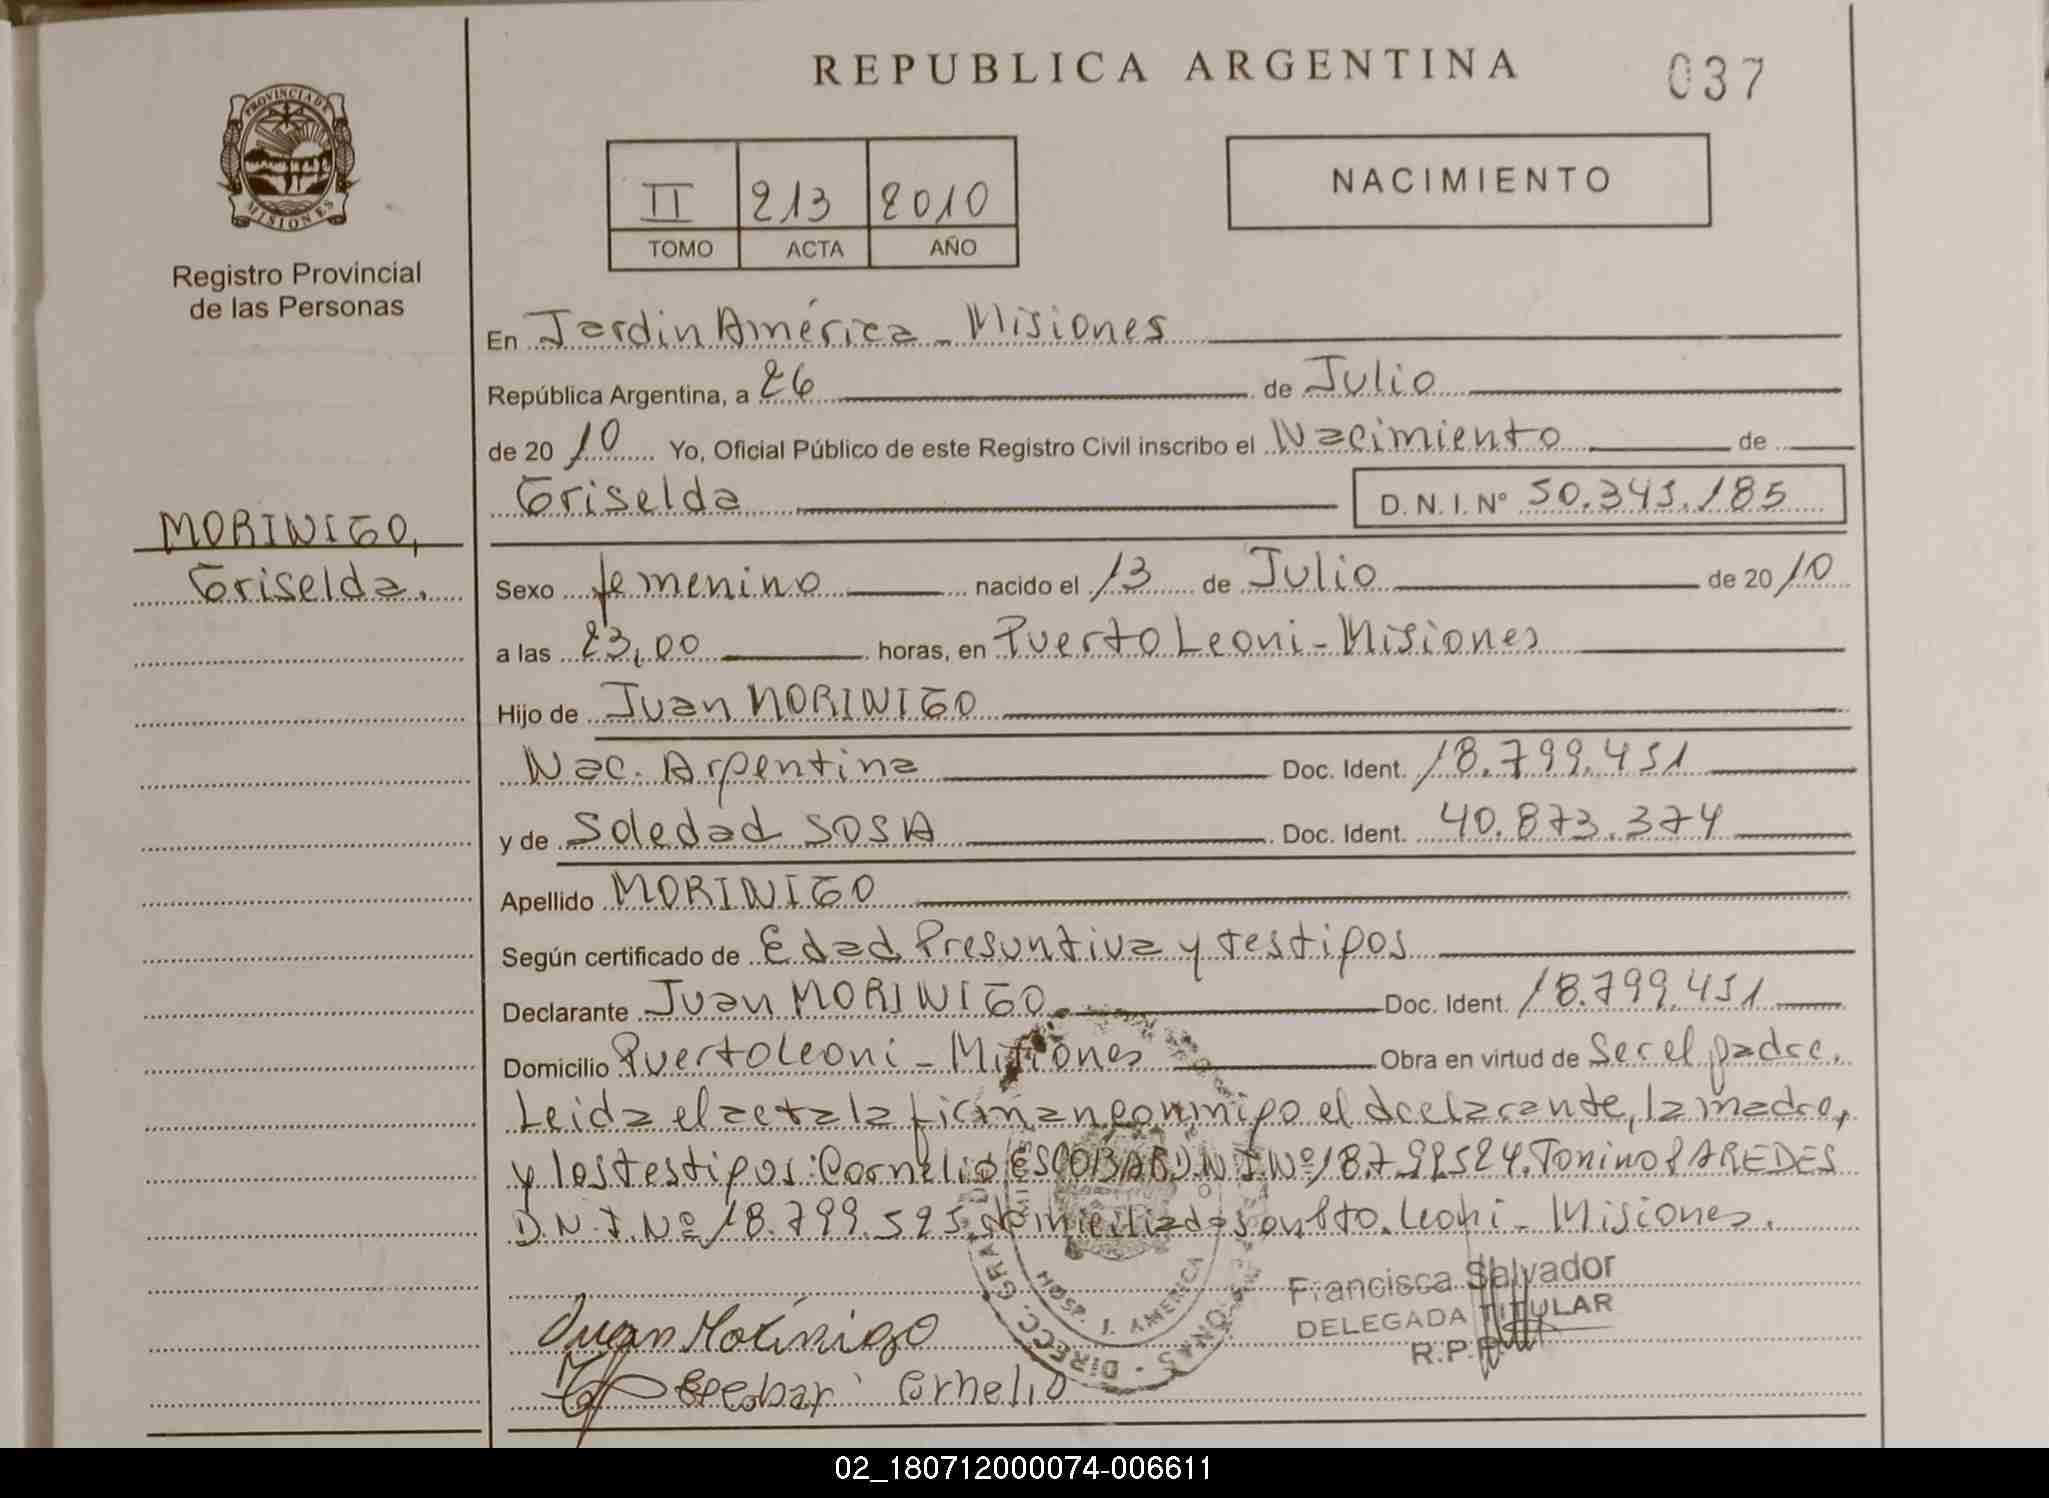 REPUBLICA ARGENTINA
037
PROVINCIA DE
MISIONES
Registro Provincial
de las Personas
II 213 2010
TOMO ACTA AÑO
NACIMIENTO
En Jardin América - Misiones
República Argentina, a 26 de Julio
de 2010 Yo, Oficial Público de este Registro Civil inscribo el Nacimiento de
Griselda D.N.I.Nº 50.343.185
MORINIGO,
Griselda.
Sexo femenino nacido el 13 de Julio de 2010
a las 23,00 horas, en Puerto Leoni - Misiones
Hijo de Juan MORINIGO
Nac. Argentina Doc. Ident. 18.799.451
y de Soledad SOSA Doc. Ident. 40.873.374
Apellido MORINIGO
Según certificado de Edad Presuntiva y testigos
Declarante Juan MORINIGO Doc. Ident. 18.799.451
Domicilio Puerto Leoni - Misiones Obra en virtud de Ser el padre.
Leida el acta la firman conmigo el declarante, la madre,
y los testigos: Cornelio ESCOBAR D.N.I.Nº 18.799524. Tonino PAREDES
D.N.I.Nº 18.799.595 domiciliados en Pto. Leoni - Misiones.
HOSP. J. AMERICA
DIRECC. GRAL
Francisca Salvador
DELEGADA TITULAR
R.P.P.
Juan Morinigo
Escobar Cornelio
02_180712000074-006611